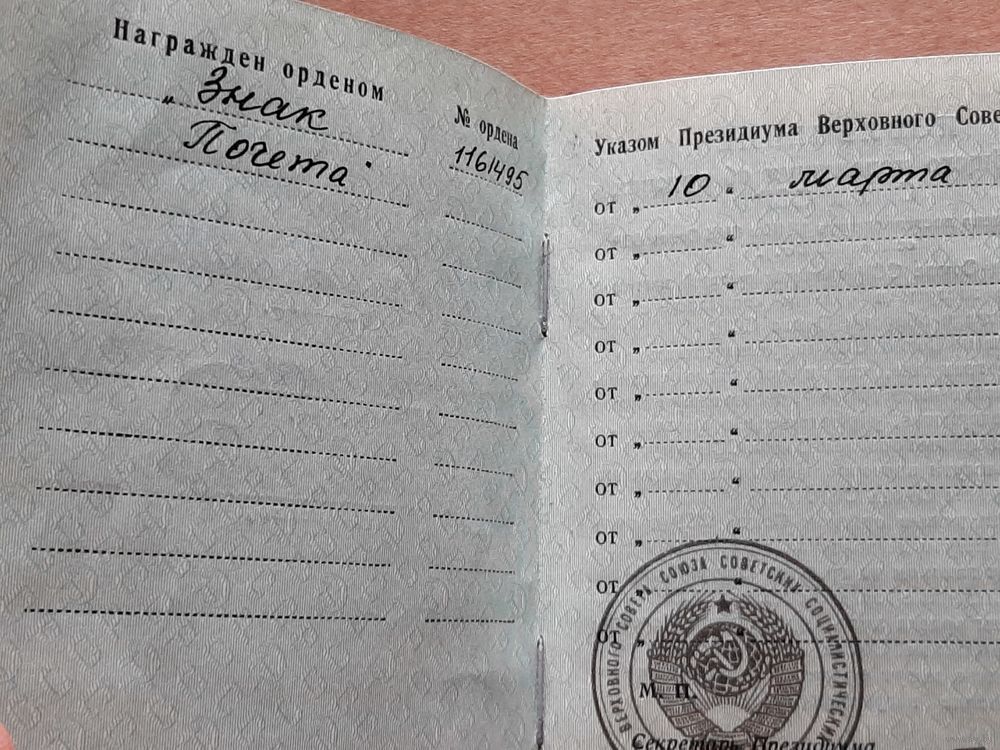 Награжден орденом
№ ордена
„Знак
Почета"
1161495
Указом Президиума Верховного Сове
от „ 10 “ марта
от „ “
от „ “
от „ “
от „ “
от „ “
от „ “
от „ “
от „ “
от „ “
ВЕРХОВНОГО СОВЕТА СОЮЗА СОВЕТСКИХ СОЦИАЛИСТИЧЕСКИХ
М. П.
Секретарь Президиума